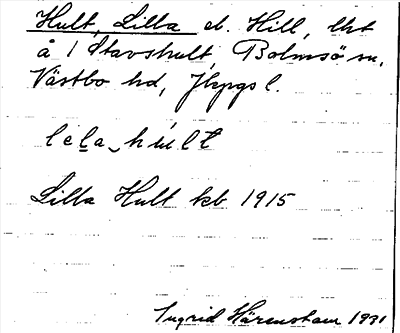 Hult, Lilla el. Hill, lht
å 1 Stavshult, Bolmsö sn,
Västbo hd, Jkpgs l.
lela hult
Lilla Hult kb 1915
Ingrid Härenstam 1931